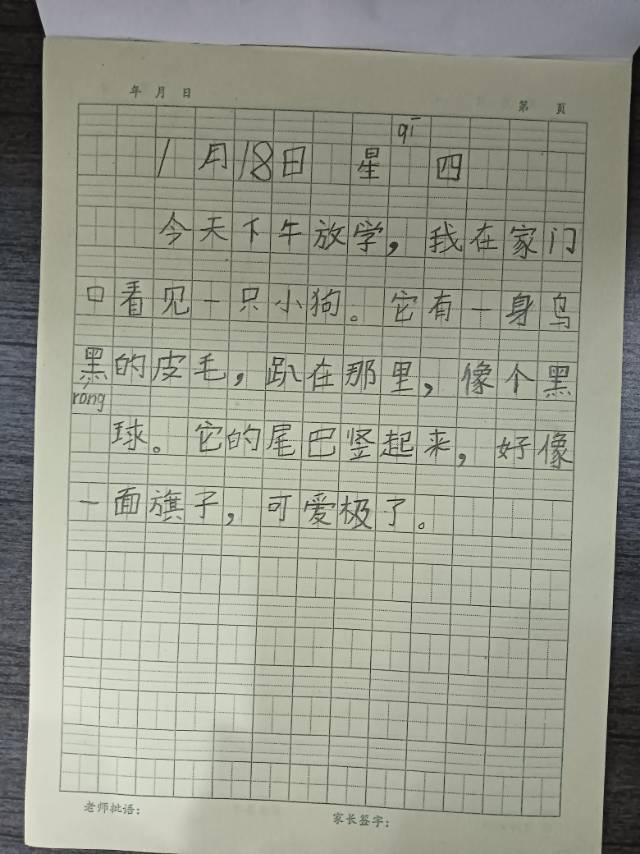 年 月 日 第 頁
qī
1月18日 星 四
今天下午放学，我在家门
口看见一只小狗。它有一身乌
黑的皮毛，趴在那里，像个黑
rong
球。它的尾巴竖起来，好像
一面旗子，可爱极了。
老师批语： 家长签字：